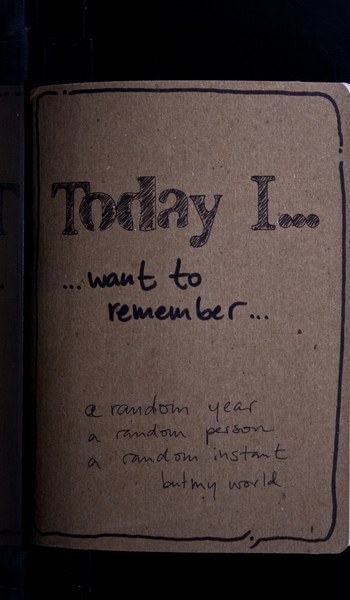 Today I...
...want to
remember...
a random year
a random person
a random instant
but my world